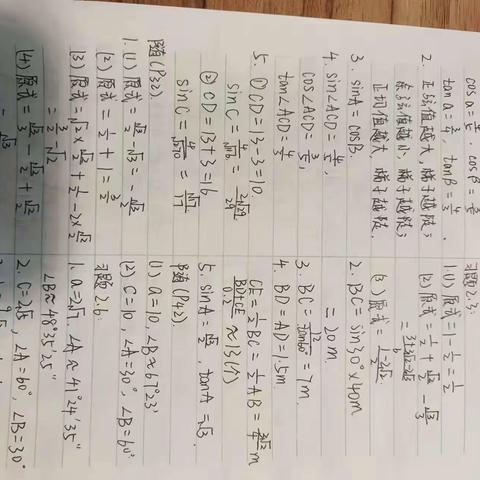 cosα=4/5, cosβ=3/5
tanα=3/4, tanβ=4/3.
2. 正弦值越大,梯子越陡;
余弦值越小,梯子越陡;
正切值越大,梯子越陡.
3. sinA=cosB.
4. sin∠ACD=4/5,
cos∠ACD=3/5,
tan∠ACD=4/3
5. ①CD=13-3=10.
②CD=13+3=16
随(P32).
1. (1) 原式=√3/2-√3=-√3/2
(2) 原式=1/2+1=3/2
(3) 原式=√2×√2/2+1/2-2×√2/2
=3/2-√2
(4) 原式=√3/3-√3/2+√2/2
习题2.3:
1.(1) 原式=1-1/2=1/2
(2) 原式=1/2+√2/2-√3/3
=(3+3√2-2√3)/6
(3) 原式=
2. BC=sin30°×40m
=20m.
3. BC=
=7m.
4. BD=AD=1.5m
CE=1/2BC=1/2AB=
≈13(个)
5. sinA=√3/2, tanA=√3.
随(P42).
(1) a=10, ∠B≈67°23′
(2) C=10, ∠A=30°, ∠B=60°
习题2.6:
1. a=2√7, ∠A≈41°24′35″
∠B≈48°35′25″
2. C=2√5, ∠A=60°, ∠B=30°